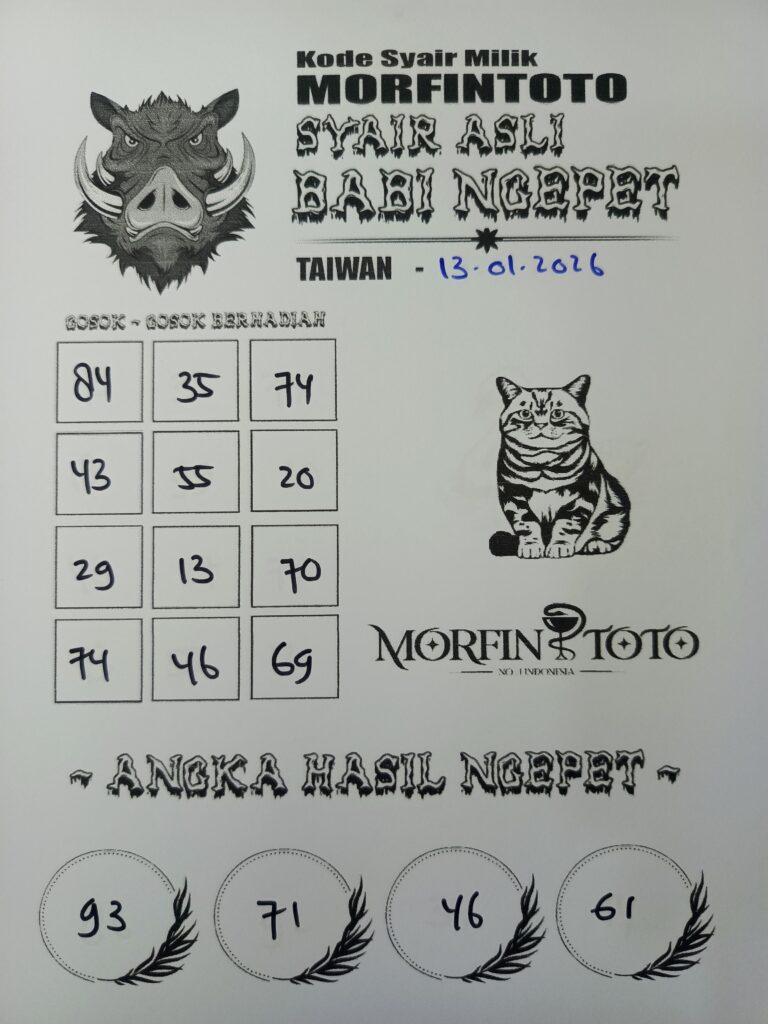 Kode Syair Milik
MORFINTOTO
SYAIR ASLI
BABI NGEPET
TAIWAN - 13.01.2026
GOSOK - GOSOK BERHADIAH
84 35 74
43 55 20
29 13 70
74 46 69
MORFIN TOTO
NO 1 INDONESIA
~ ANGKA HASIL NGEPET ~
93 71 46 61